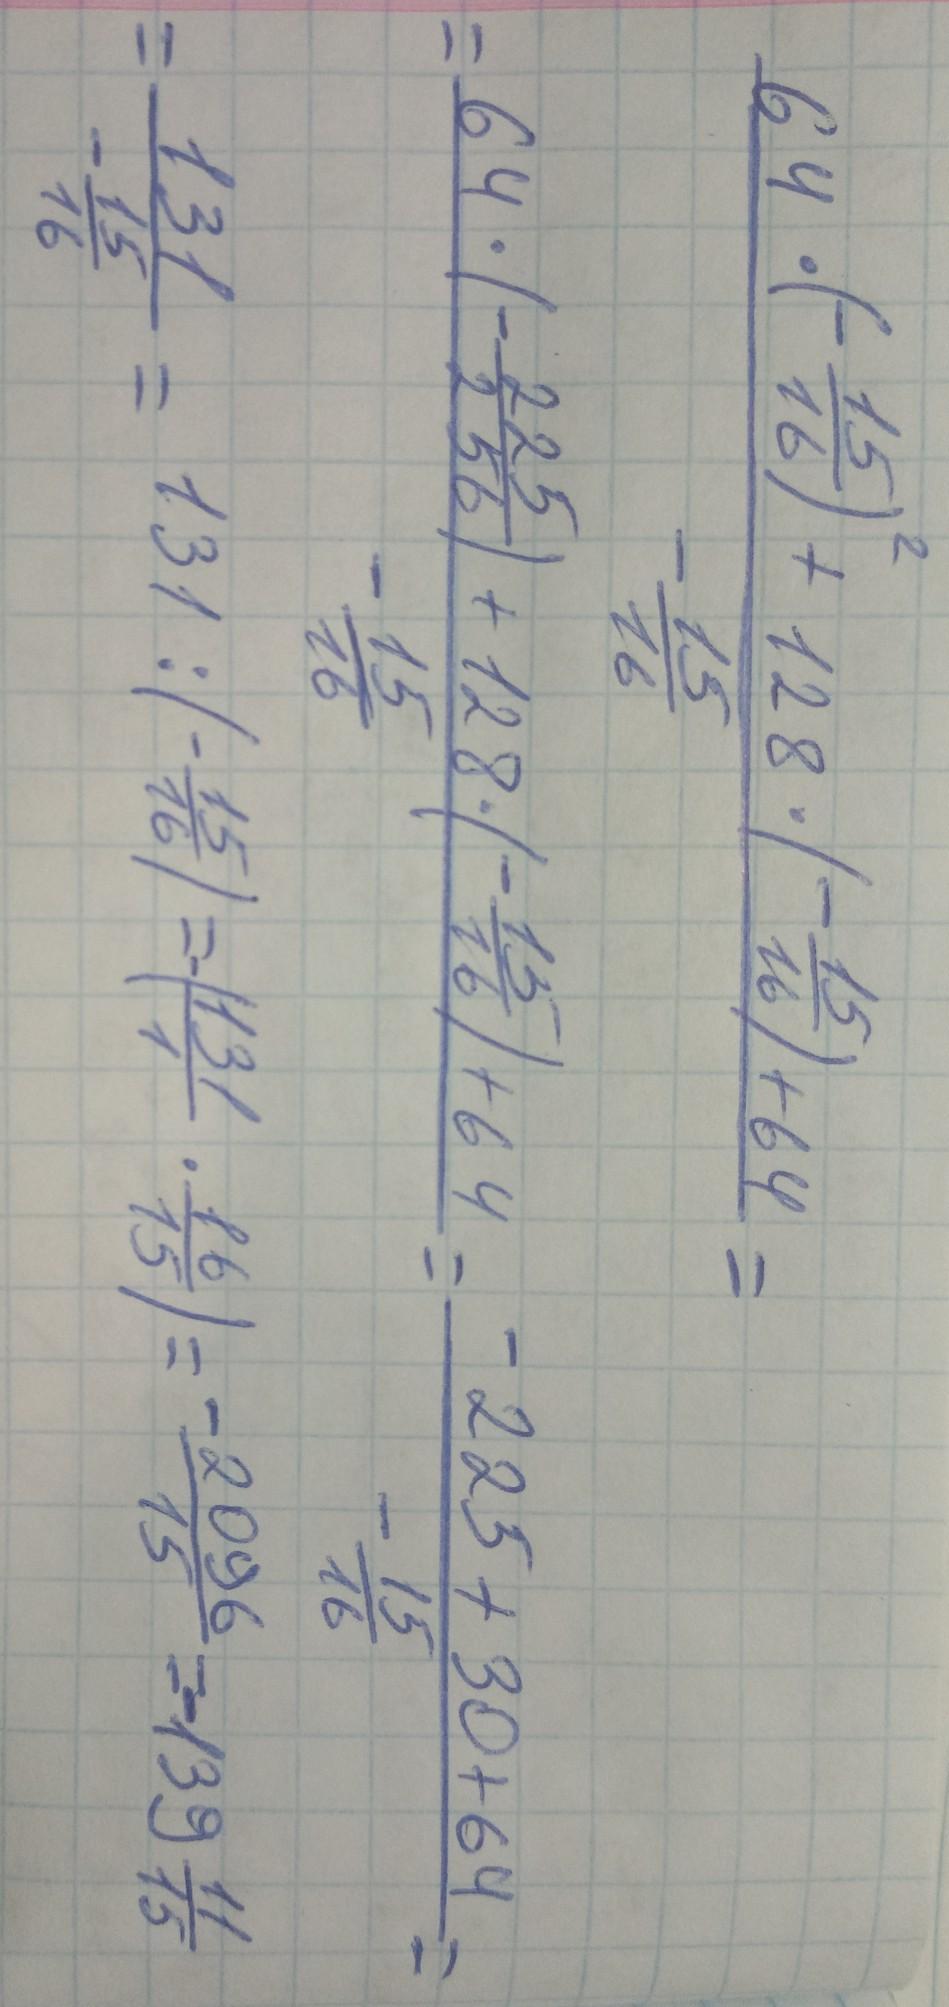 64 · (- 15/16)² + 128 · (- 15/16) + 64 / - 15/16 =
= 64 · (- 225/256) + 128 · (- 15/16) + 64 / - 15/16 = - 225 + 30 + 64 / - 15/16 =
= 131 / - 15/16 = 131 : (- 15/16) = -(131/1 · 16/15) = - 2096/15 = -139 11/15